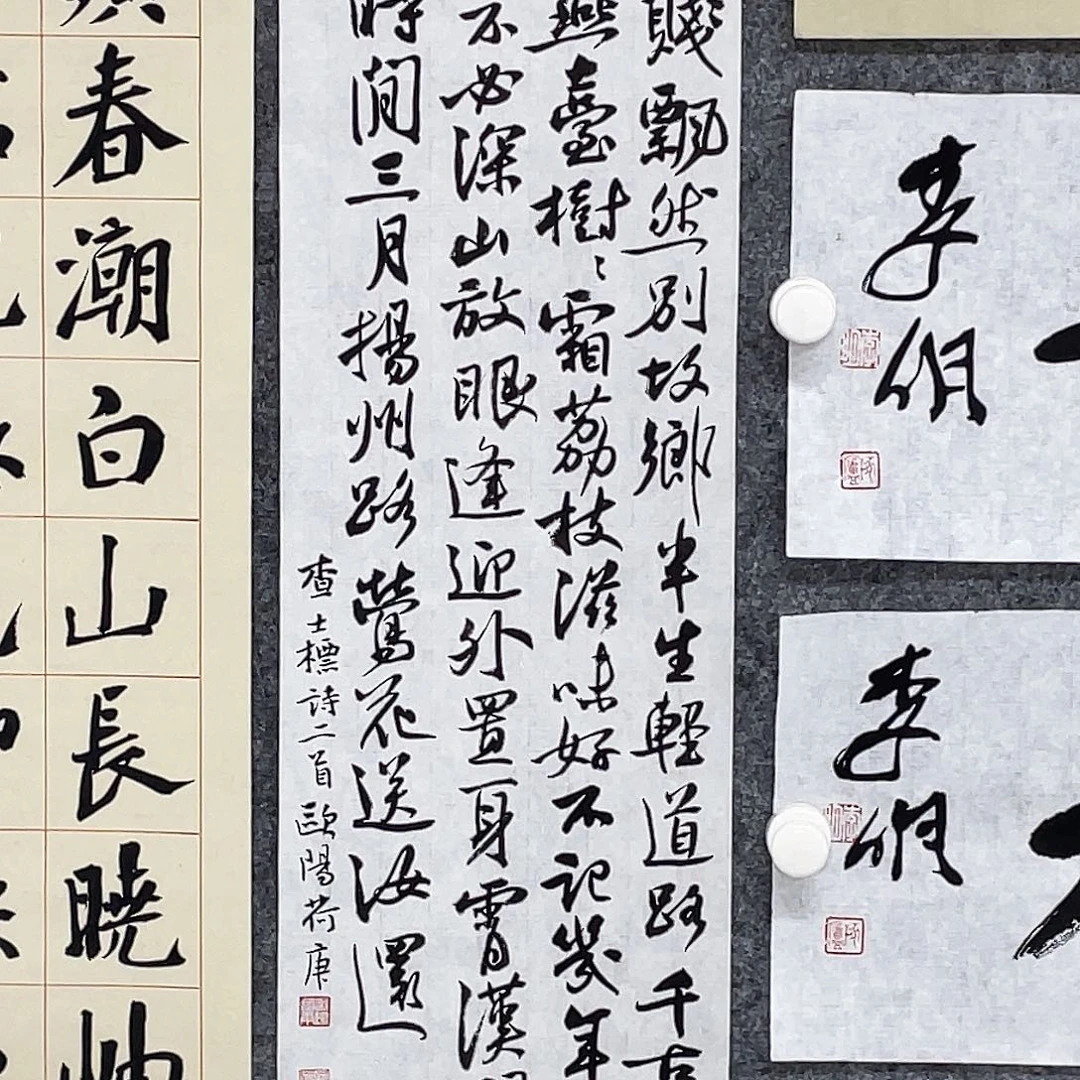 李
李
賤飄然別故鄉半生輕道路千古
燕臺樹〻霜荔枝滋味好不記幾年
不必深山放眼逢迎外置身霄漢
時間三月揚州路鶯花送汝還
查士標詩二首歐陽荷庚
春潮白山長曉岫